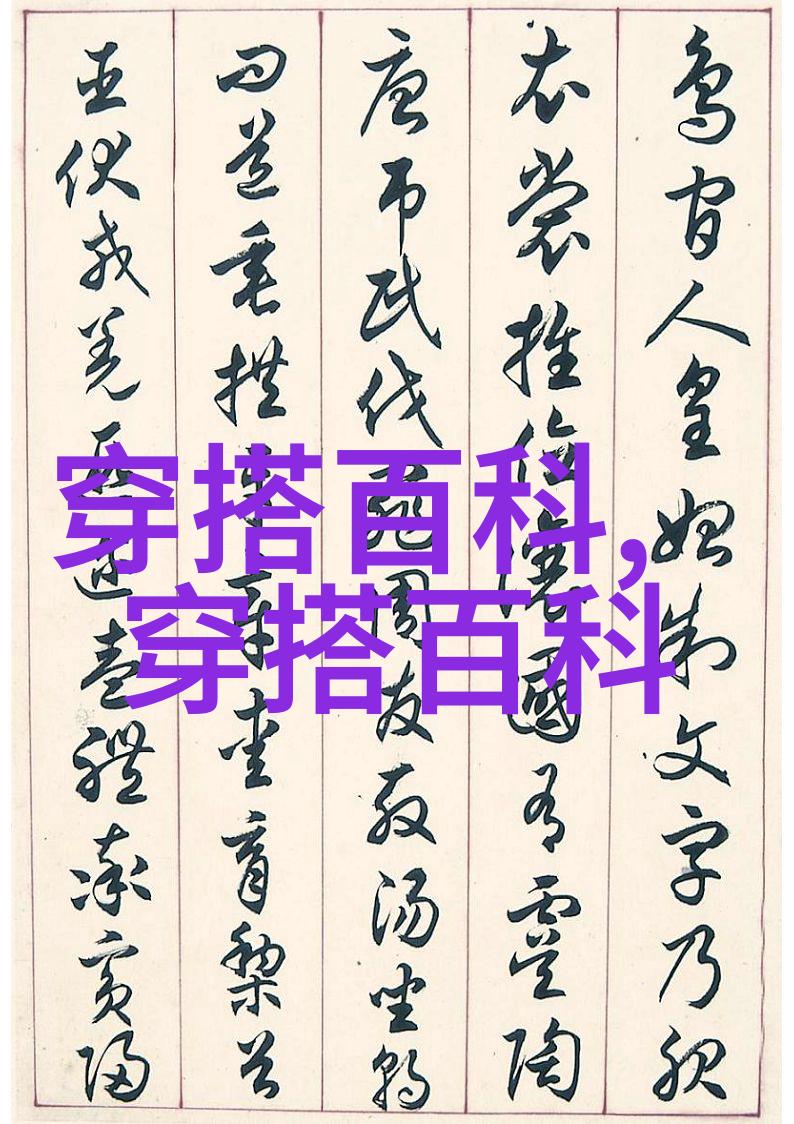 鳥官人皇始制文字乃服
衣裳推位讓國有虞陶
唐弔民伐罪周發殷湯坐朝
問道垂拱平章愛育黎首
臣伏戎羌遐邇壹體率賓歸
穿搭百科,
穿搭百科